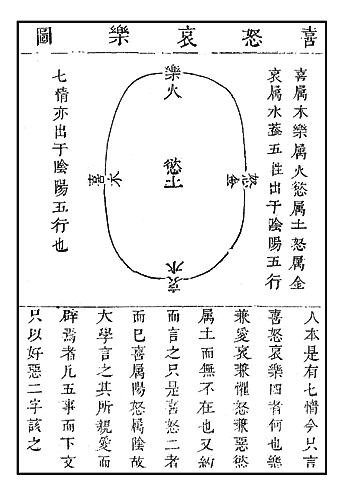 喜怒哀樂圖
喜属木樂属火慾属土怒属金
哀属水蓋五性出于陰陽五行
樂火
怒金
慾土
喜木
哀水
七情亦出于陰陽五行也
人本是有七情今只言
喜怒哀樂四者何也樂
兼愛哀兼懼怒兼惡慾
属土而無不在也又約
而言之只是喜怒二者
而已喜属陽怒属陰故
大學言之其所親愛而
辟焉者凡五事而下文
只以好惡二字該之